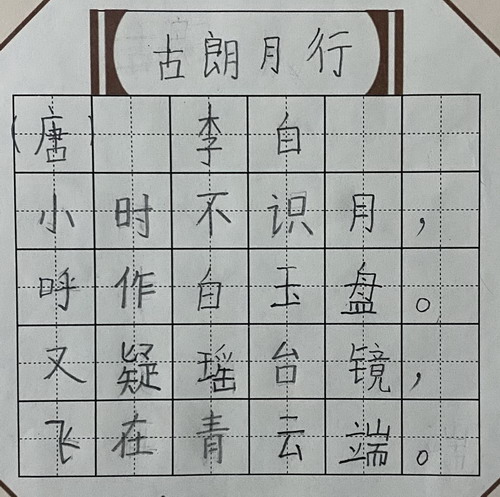 古朗月行
(唐) 李自
小时不识月，
呼作自玉盘。
又疑瑶台镜，
飞在青云端。